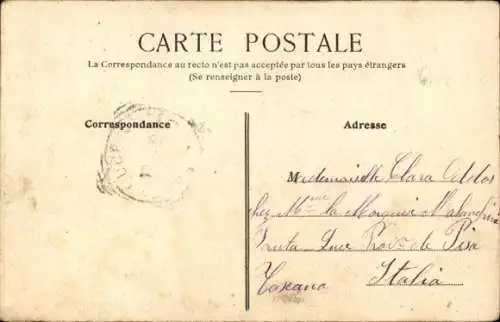 CARTE POSTALE
La Correspondance au recto n'est pas acceptée par tous les pays étrangers
(Se renseigner à la poste)
Correspondance
Adresse
Mademoiselle Clara
chez Mme la Marquise
Santa Luce Prov. de Pisa
Toscana Italia